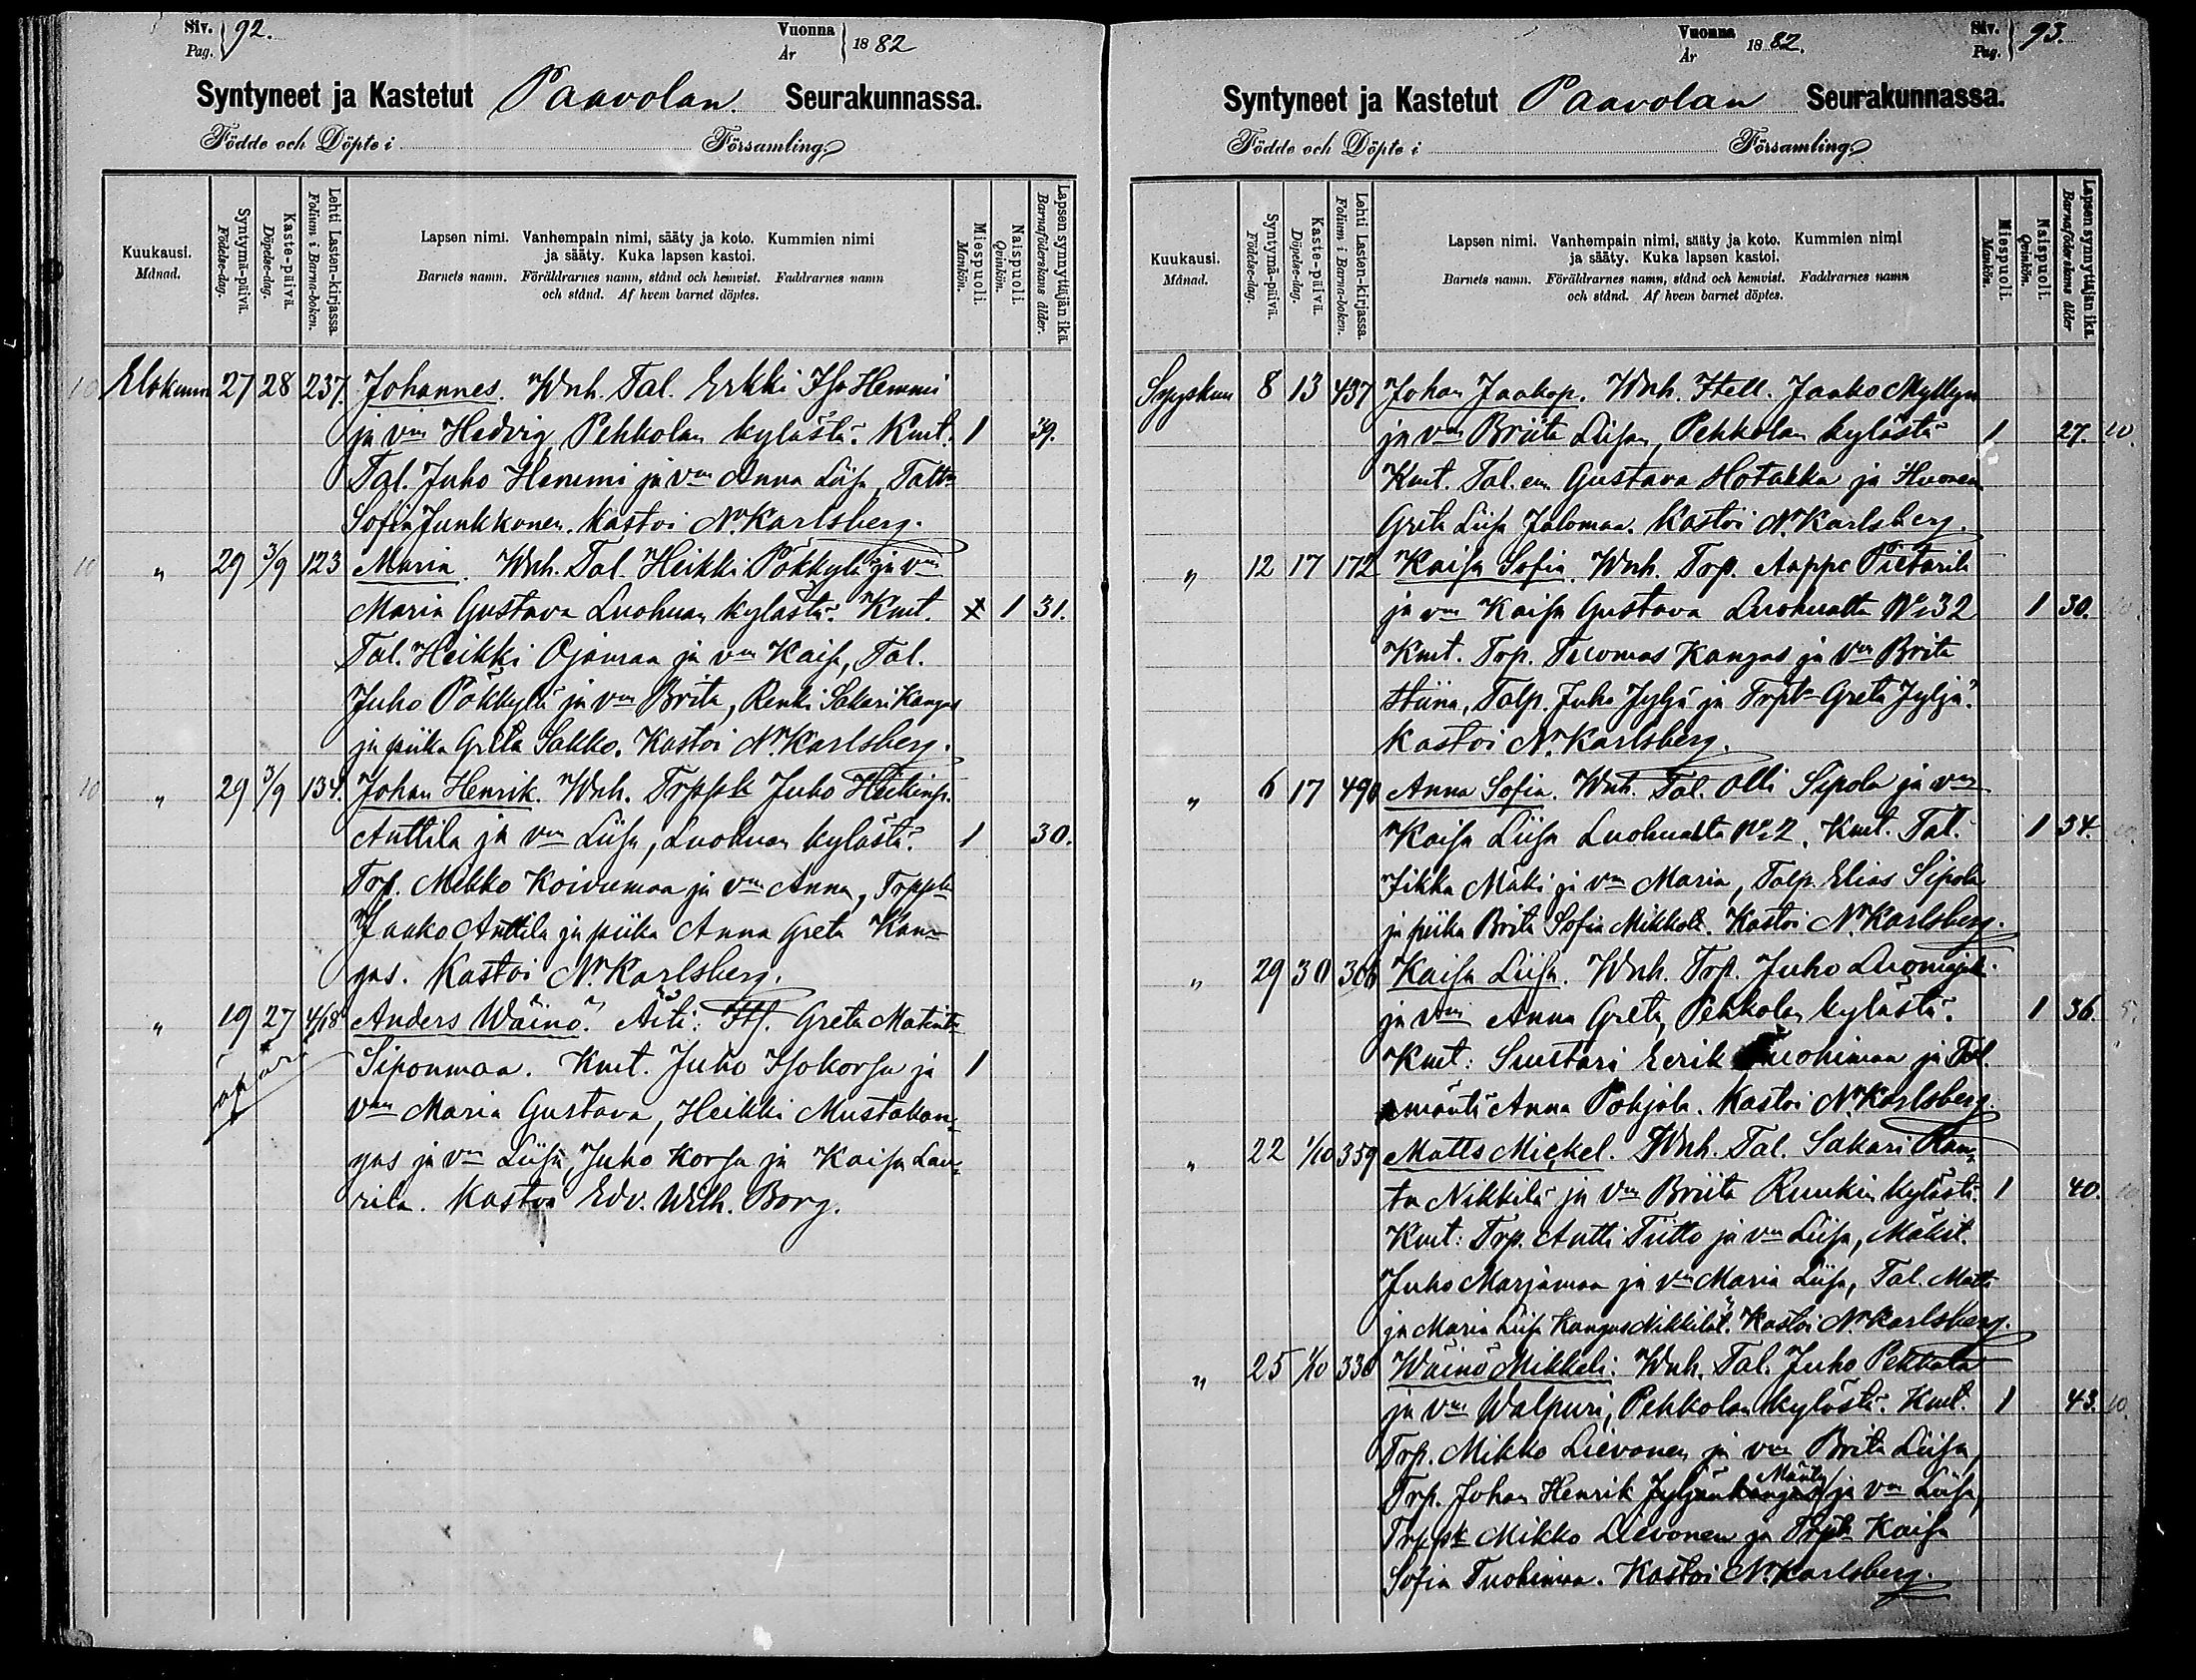 Siv. Pag. 92.
Vuonna År 1882
Syntyneet ja Kastetut Paavolan Seurakunnassa.
Födde och Döpte i Församling.
Kuukausi. Månad.
Syntymä-päivä. Födelse-dag.
Kaste-päivä. Döpelse-dag.
Lehti Lasten-kirjassa. Folium i Barna-boken.
Lapsen nimi. Vanhempain nimi, sääty ja koto. Kummien nimi
ja sääty. Kuka lapsen kastoi.
Barnets namn. Föräldrarnes namn, stånd och hemvist. Faddrarnes namn
och stånd. Af hvem barnet döptes.
Miespuoli. Mankön.
Naispuoli. Qvinkön.
Lapsen synnyttäjän ikä. Barnaföderskans ålder.
10 Elokuun 27 28 237. Johannes. Wnh. Tal. Erkki Iso Hemmi
ja vm Hedvig Pehkolan kylästä. Kmt. 1 39.
Tal. Juho Hemmi ja vm Anna Liisa, Taltr
Sofia Junkkonen. Kastoi N. Karlsberg.
10 " 29 3/9 123 Maria. Wnh. Tal. Heikki Pökkylä ja vm
Maria Gustava Luohuan kylästä. Kmt. 1 31.
Tal. Heikki Ojamaa ja vm Kaisa, Tal.
Juho Pökkylä ja vm Brita, Renki Sakari Kangas
ja piika Greta Sakko. Kastoi N. Karlsberg.
10 " 29 3/9 134. Johan Henrik. Wnh. Trppk Juho Heikinp.
Anttila ja vm Liisa, Luohuan kylästä. 1 30.
Trp. Mikko Koivumaa ja vm Anna, Trppk
Jaako Anttila ja piika Anna Greta Kan-
gas. Kastoi N. Karlsberg.
" 19 27 4/18 Anders Wäinö. Äiti: Itf. Greta Matintr
äpärä
Siponmaa. Kmt. Juho Isokorsu ja 1
vm Maria Gustava, Heikki Mustakan-
gas ja vm Liisa, Juho Korsu ja Kaisa Lau-
rila. Kastoi Edv. Wilh. Borg.
Siv. Pag. 93.
Vuonna År 1882.
Syntyneet ja Kastetut Paavolan Seurakunnassa.
Födde och Döpte i Församling.
Kuukausi. Månad.
Syntymä-päivä. Födelse-dag.
Kaste-päivä. Döpelse-dag.
Lehti Lasten-kirjassa. Folium i Barna-boken.
Lapsen nimi. Vanhempain nimi, sääty ja koto. Kummien nimi
ja sääty. Kuka lapsen kastoi.
Barnets namn. Föräldrarnes namn, stånd och hemvist. Faddrarnes namn
och stånd. Af hvem barnet döptes.
Miespuoli. Mankön.
Naispuoli. Qvinkön.
Lapsen synnyttäjän ikä. Barnaföderskans ålder
Syyskuu 8 13 437 Johan Jaakop. Wnh. Itell. Jaako Myllyn
ja vm Briita Liisan, Pehkolan kylästä 1 27. 10.
Kmt. Tal. em. Gustava Hotakka ja Huonen
Greta Liisa Jalomaa. Kastoi N. Karlsberg.
" 12 17 172 Kaisa Sofia. Wnh. Trp. Aappo Pietarila
ja vm Kaisa Gustava Luohualta No 32 1 30. 10.
Kmt. Trp. Tuomas Kangas ja vm Brita
Stiina, Talp. Juho Jyljä ja Trptr Greta Jyljä.
Kastoi N. Karlsberg.
" 6 17 490 Anna Sofia. Wnh. Tal. Olli Sipola ja vm
Kaisa Liisa Luohualta No 2. Kmt. Tal. 1 34. 10.
Iikka Mäki ja vm Maria, Talp. Elias Sipola
ja piika Brita Sofia Mikkola. Kastoi N. Karlsberg.
" 29 30 306 Kaisa Liisa. Wnh. Trp. Juho Luomajoki
ja vm Anna Greta, Pehkolan kylästä. 1 36. 5.
Kmt: Suutari Eerik Tuohimaa ja Tal.
emäntä Anna Pohjola. Kastoi N. Karlsberg.
" 22 1/10 359 Matts Mickel. Wnh. Tal. Sakari Ran-
ta Nikkilä ja vm Briita Ruukin kylästä. 1 40. 10
Kmt: Trp. Antti Tiitto ja vm Liisa, Mäkit.
Juho Marjamaa ja vm Maria Liisa, Tal. Matti
ja Maria Liisa Kangas Nikkilät. Kastoi N. Karlsberg.
" 25 1/10 336 Wäinö Mikkeli: Wnh. Tal. Juho Pehkola
ja vm Walpuri, Pehkolan kylästä. Kmt. 1 43. 10.
Trp. Mikko Lievonen ja vm Brita Liisa,
Trp. Johan Henrik Jyljänkangas Mänty ja vm Liisa,
Trppk Mikko Lievonen ja Trptr Kaisa
Sofia Tuohimaa. Kastoi N. Karlsberg.